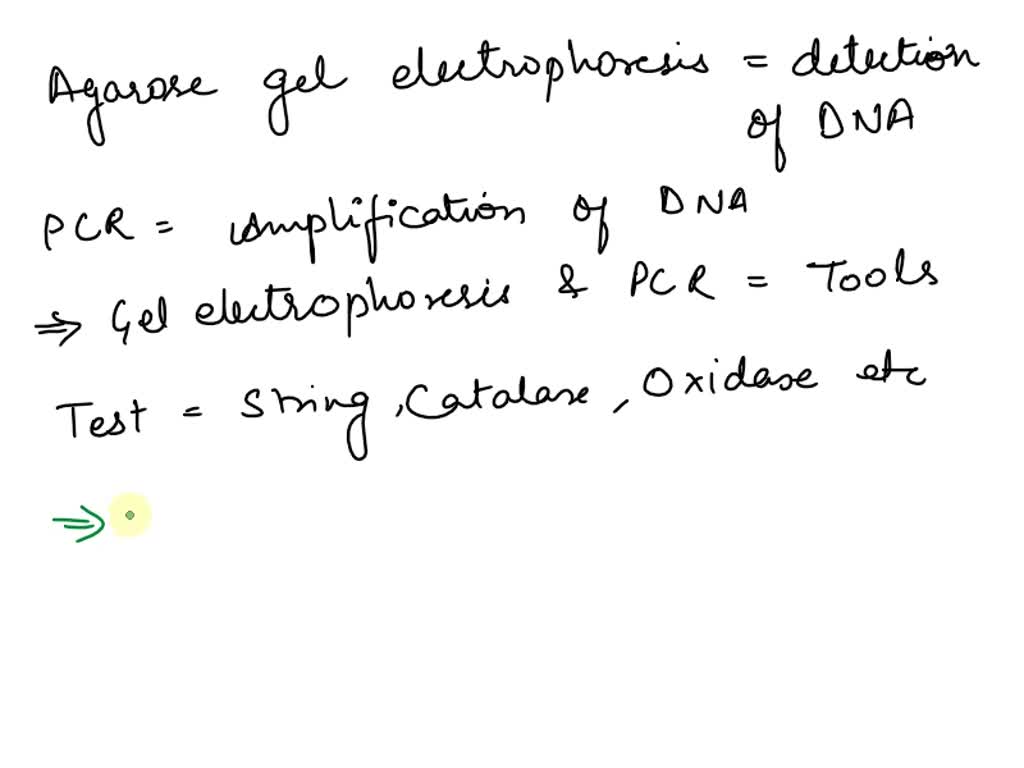 Agarose gel electrophoresis = detection
of DNA
PCR = amplification of DNA
⇒ Gel electrophoresis & PCR = Tools
Test = String, Catalase, Oxidase etc
⇒